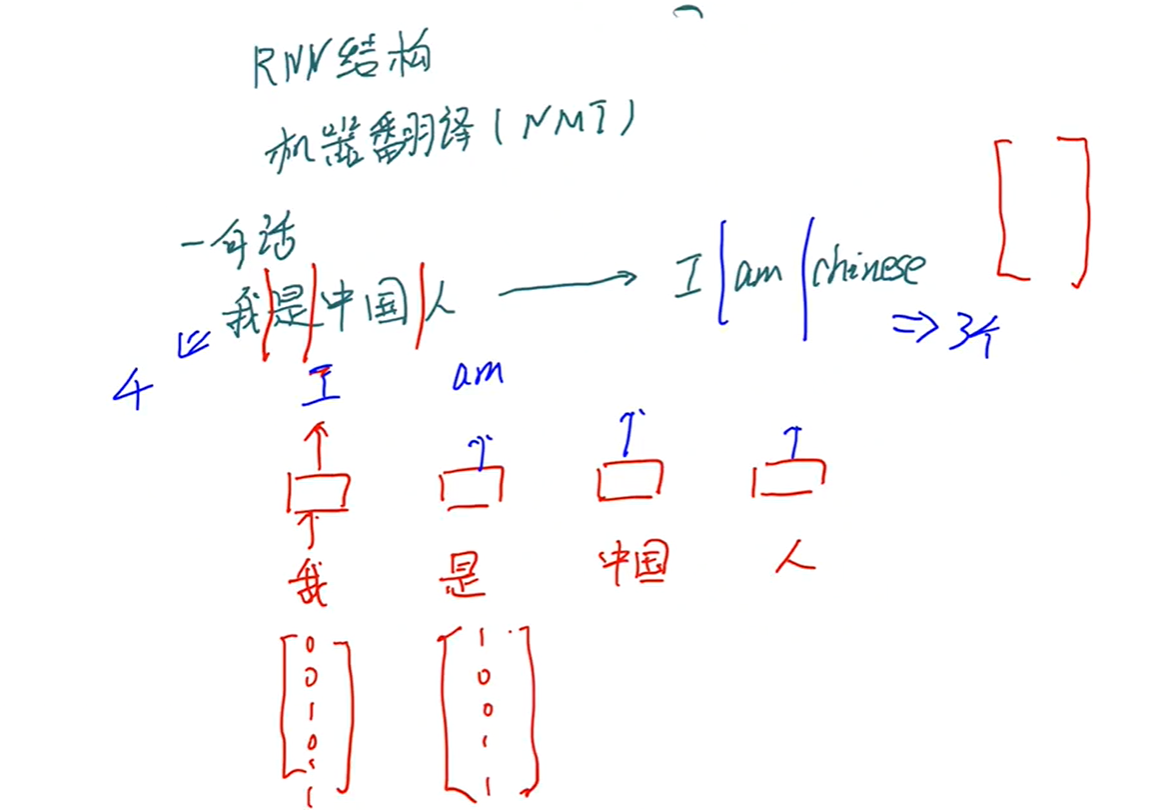 RNN结构
机器翻译(NMT)
一句话
我是中国人 → I am chinese
⇒ 3个
4
I am
我 是 中国 人
0 1
0 0
1 0
0 1
1 1